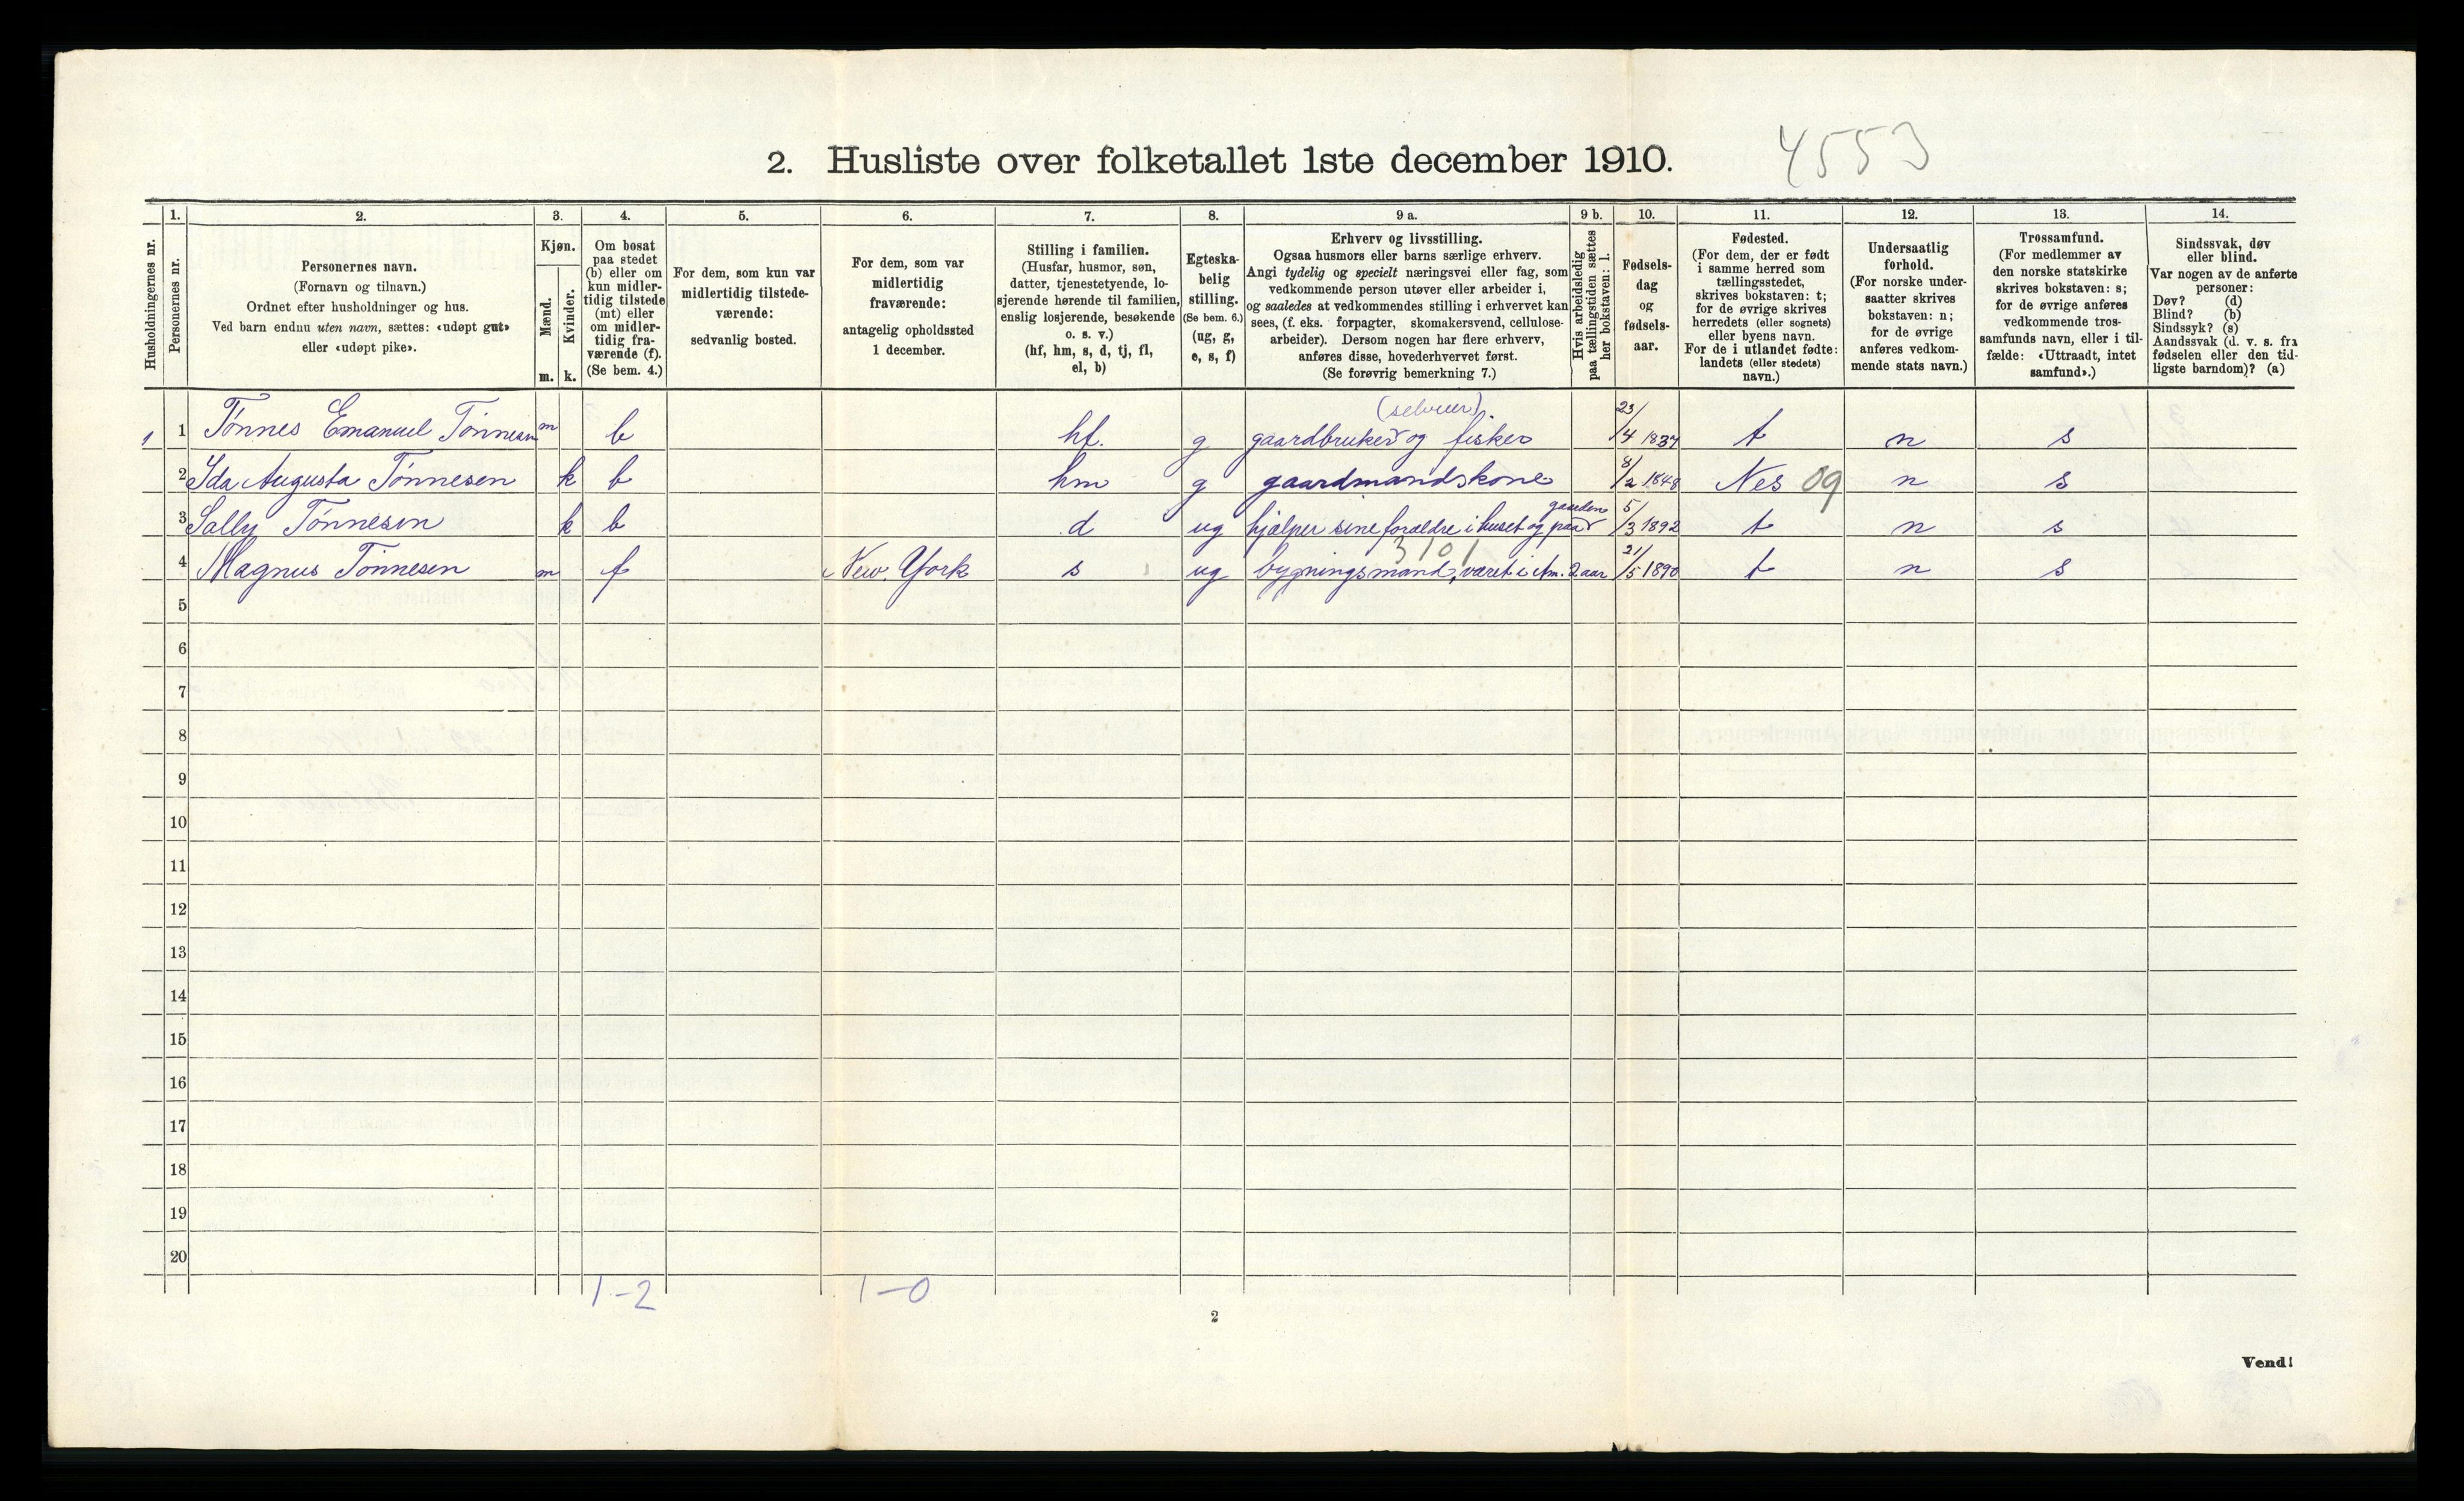 2. Husliste over folketallet 1ste december 1910. 4553
Husholdningernes nr.
1.
Personernes nr.
2.
Personernes navn.
(Fornavn og tilnavn.)
Ordnet efter husholdninger og hus.
Ved barn endnu uten navn, sættes: «udøpt gut»
eller «udøpt pike».
3.
Kjøn.
Mænd.
m.
Kvinder.
k.
4.
Om bosat
paa stedet
(b) eller om
kun midler-
tidig tilstede
(mt) eller
om midler-
tidig fra-
værende (f).
(Se bem. 4.)
5.
For dem, som kun var
midlertidig tilstede-
værende:
sedvanlig bosted.
6.
For dem, som var
midlertidig
fraværende:
antagelig opholdssted
1 december.
7.
Stilling i familien.
(Husfar, husmor, søn,
datter, tjenestetyende, lo-
sjerende hørende til familien,
enslig losjerende, besøkende
o. s. v.)
(hf, hm, s, d, tj, fl,
el, b)
8.
Egteska-
belig
stilling.
(Se bem. 6.)
(ug, g,
e, s, f)
9 a.
Erhverv og livsstilling.
Ogsaa husmors eller barns særlige erhverv.
Angi tydelig og specielt næringsvei eller fag, som
vedkommende person utøver eller arbeider i,
og saaledes at vedkommendes stilling i erhvervet kan
sees, (f. eks. forpagter, skomakersvend, cellulose-
arbeider). Dersom nogen har flere erhverv,
anføres disse, hovederhvervet først.
(Se forøvrig bemerkning 7.)
9 b.
Hvis arbeidsledig
paa tællingstiden sættes
her bokstaven: l.
10.
Fødsels-
dag
og
fødsels-
aar.
11.
Fødested.
(For dem, der er født
i samme herred som
tællingsstedet,
skrives bokstaven: t;
for de øvrige skrives
herredets (eller sognets)
eller byens navn.
For de i utlandet fødte:
landets (eller stedets)
navn.)
12.
Undersaatlig
forhold.
(For norske under-
saatter skrives
bokstaven: n;
for de øvrige
anføres vedkom-
mende stats navn.)
13.
Trossamfund.
(For medlemmer av
den norske statskirke
skrives bokstaven: s;
for de øvrige anføres
vedkommende tros-
samfunds navn, eller i til-
fælde: «Uttraadt, intet
samfund».)
14.
Sindssvak, døv
eller blind.
Var nogen av de anførte
personer:
Døv? (d)
Blind? (b)
Sindssyk? (s)
Aandssvak (d. v. s. fra
fødselen eller den tid-
ligste barndom)? (a)
(selveier).
1 1 Tønnes Emanuel Tønnesen m b hf. g gaardbruker og fisker 23/4 1837 t n s
2 Ida Augusta Tønnesen k b hm g gaardmandskone 8/2 1848 Nes 09 n s
gaarden
3 Sally Tønnesen k b d ug hjælper sine forældre i huset og paa 5/3 1892 t n s
3101
4 Magnus Tønnesen m f New York s ug bygningsmand, været i Am. 2 aar 21/5 1890 t n s
5
6
7
8
9
10
11
12
13
14
15
16
17
18
19
20
1-2 1-0
2
Vend!